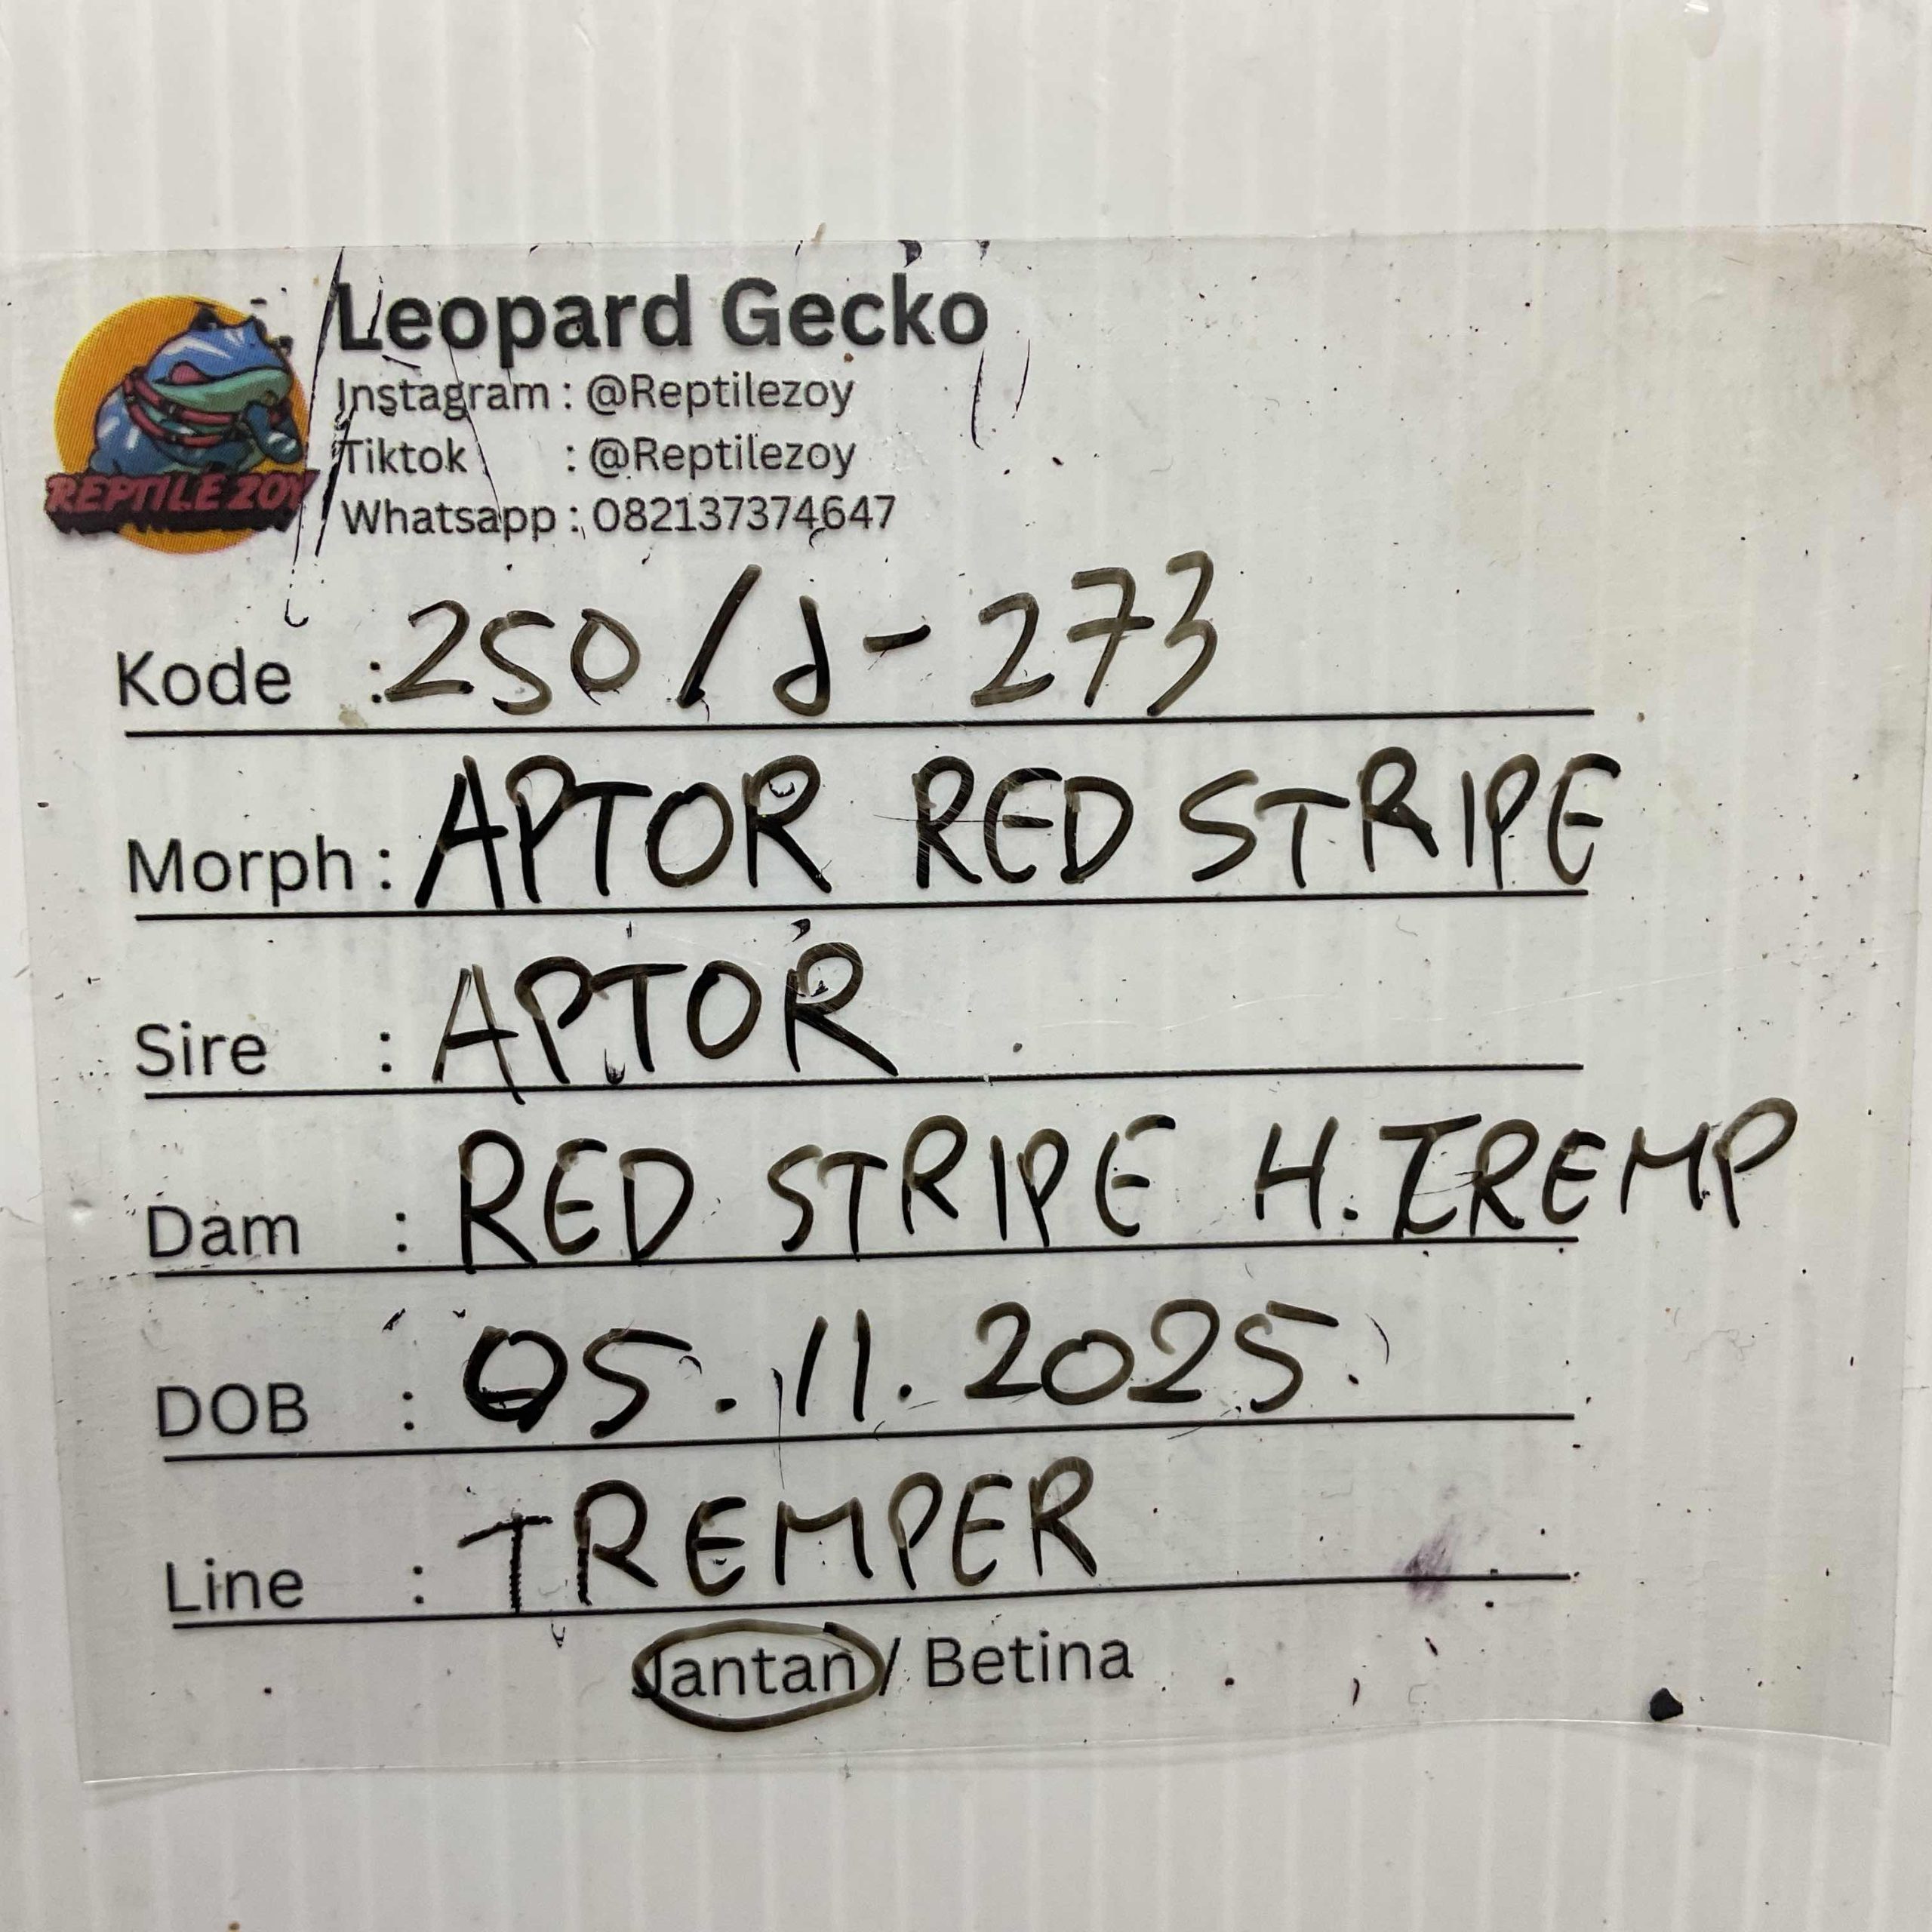 Leopard Gecko
Instagram : @Reptilezoy
Tiktok : @Reptilezoy
Whatsapp : 082137374647
REPTILE ZOY
Kode : 250/d-273
Morph : APTOR RED STRIPE
Sire : APTOR
Dam : RED STRIPE H. TREMP
DOB : 05.11.2025.
Line : TREMPER
Jantan / Betina